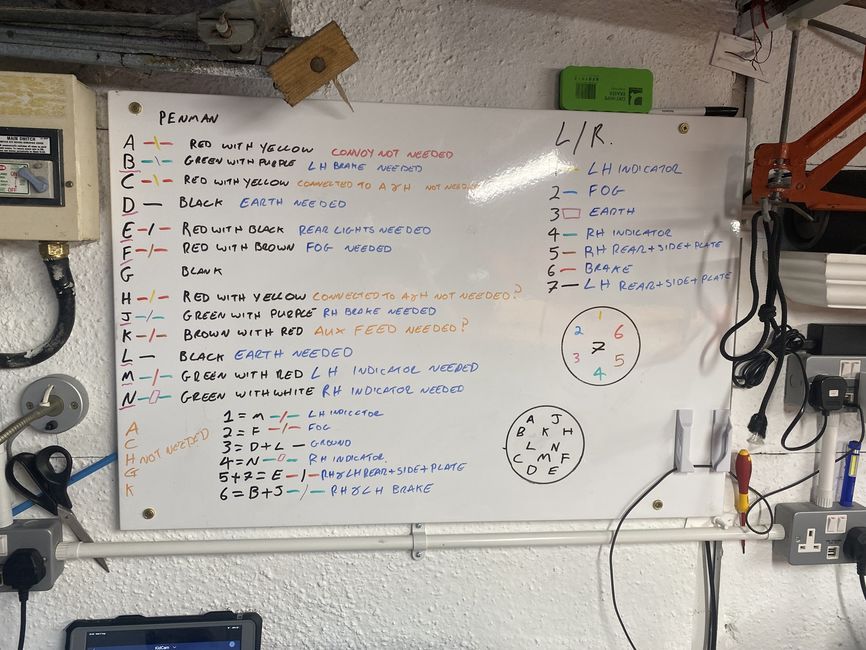 PENMAN
A RED WITH YELLOW CONVOY NOT NEEDED
B GREEN WITH PURPLE LH BRAKE NEEDED
C RED WITH YELLOW CONNECTED TO A & H NOT NEEDED
D BLACK EARTH NEEDED
E RED WITH BLACK REAR LIGHTS NEEDED
F RED WITH BROWN FOG NEEDED
G BLANK
H RED WITH YELLOW CONNECTED TO A & H NOT NEEDED?
J GREEN WITH PURPLE RH BRAKE NEEDED
K BROWN WITH RED AUX FEED NEEDED?
L BLACK EARTH NEEDED
M GREEN WITH RED LH INDICATOR NEEDED
N GREEN WITH WHITE RH INDICATOR NEEDED
A
C
H NOT NEEDED
G
K
1 = M LH INDICATOR
2 = F FOG
3 = D + L GROUND
4 = N RH INDICATOR
5 + 7 = E RH & LH REAR + SIDE + PLATE
6 = B + J RH & LH BRAKE
L/R.
LH INDICATOR
2 FOG
3 EARTH
4 RH INDICATOR
5 RH REAR + SIDE + PLATE
6 BRAKE
7 LH REAR + SIDE + PLATE
1
2 6
7
3 5
4
A J
B K H
L N
C M F
D E
MAIN SWITCH
ON
OFF
KidCam